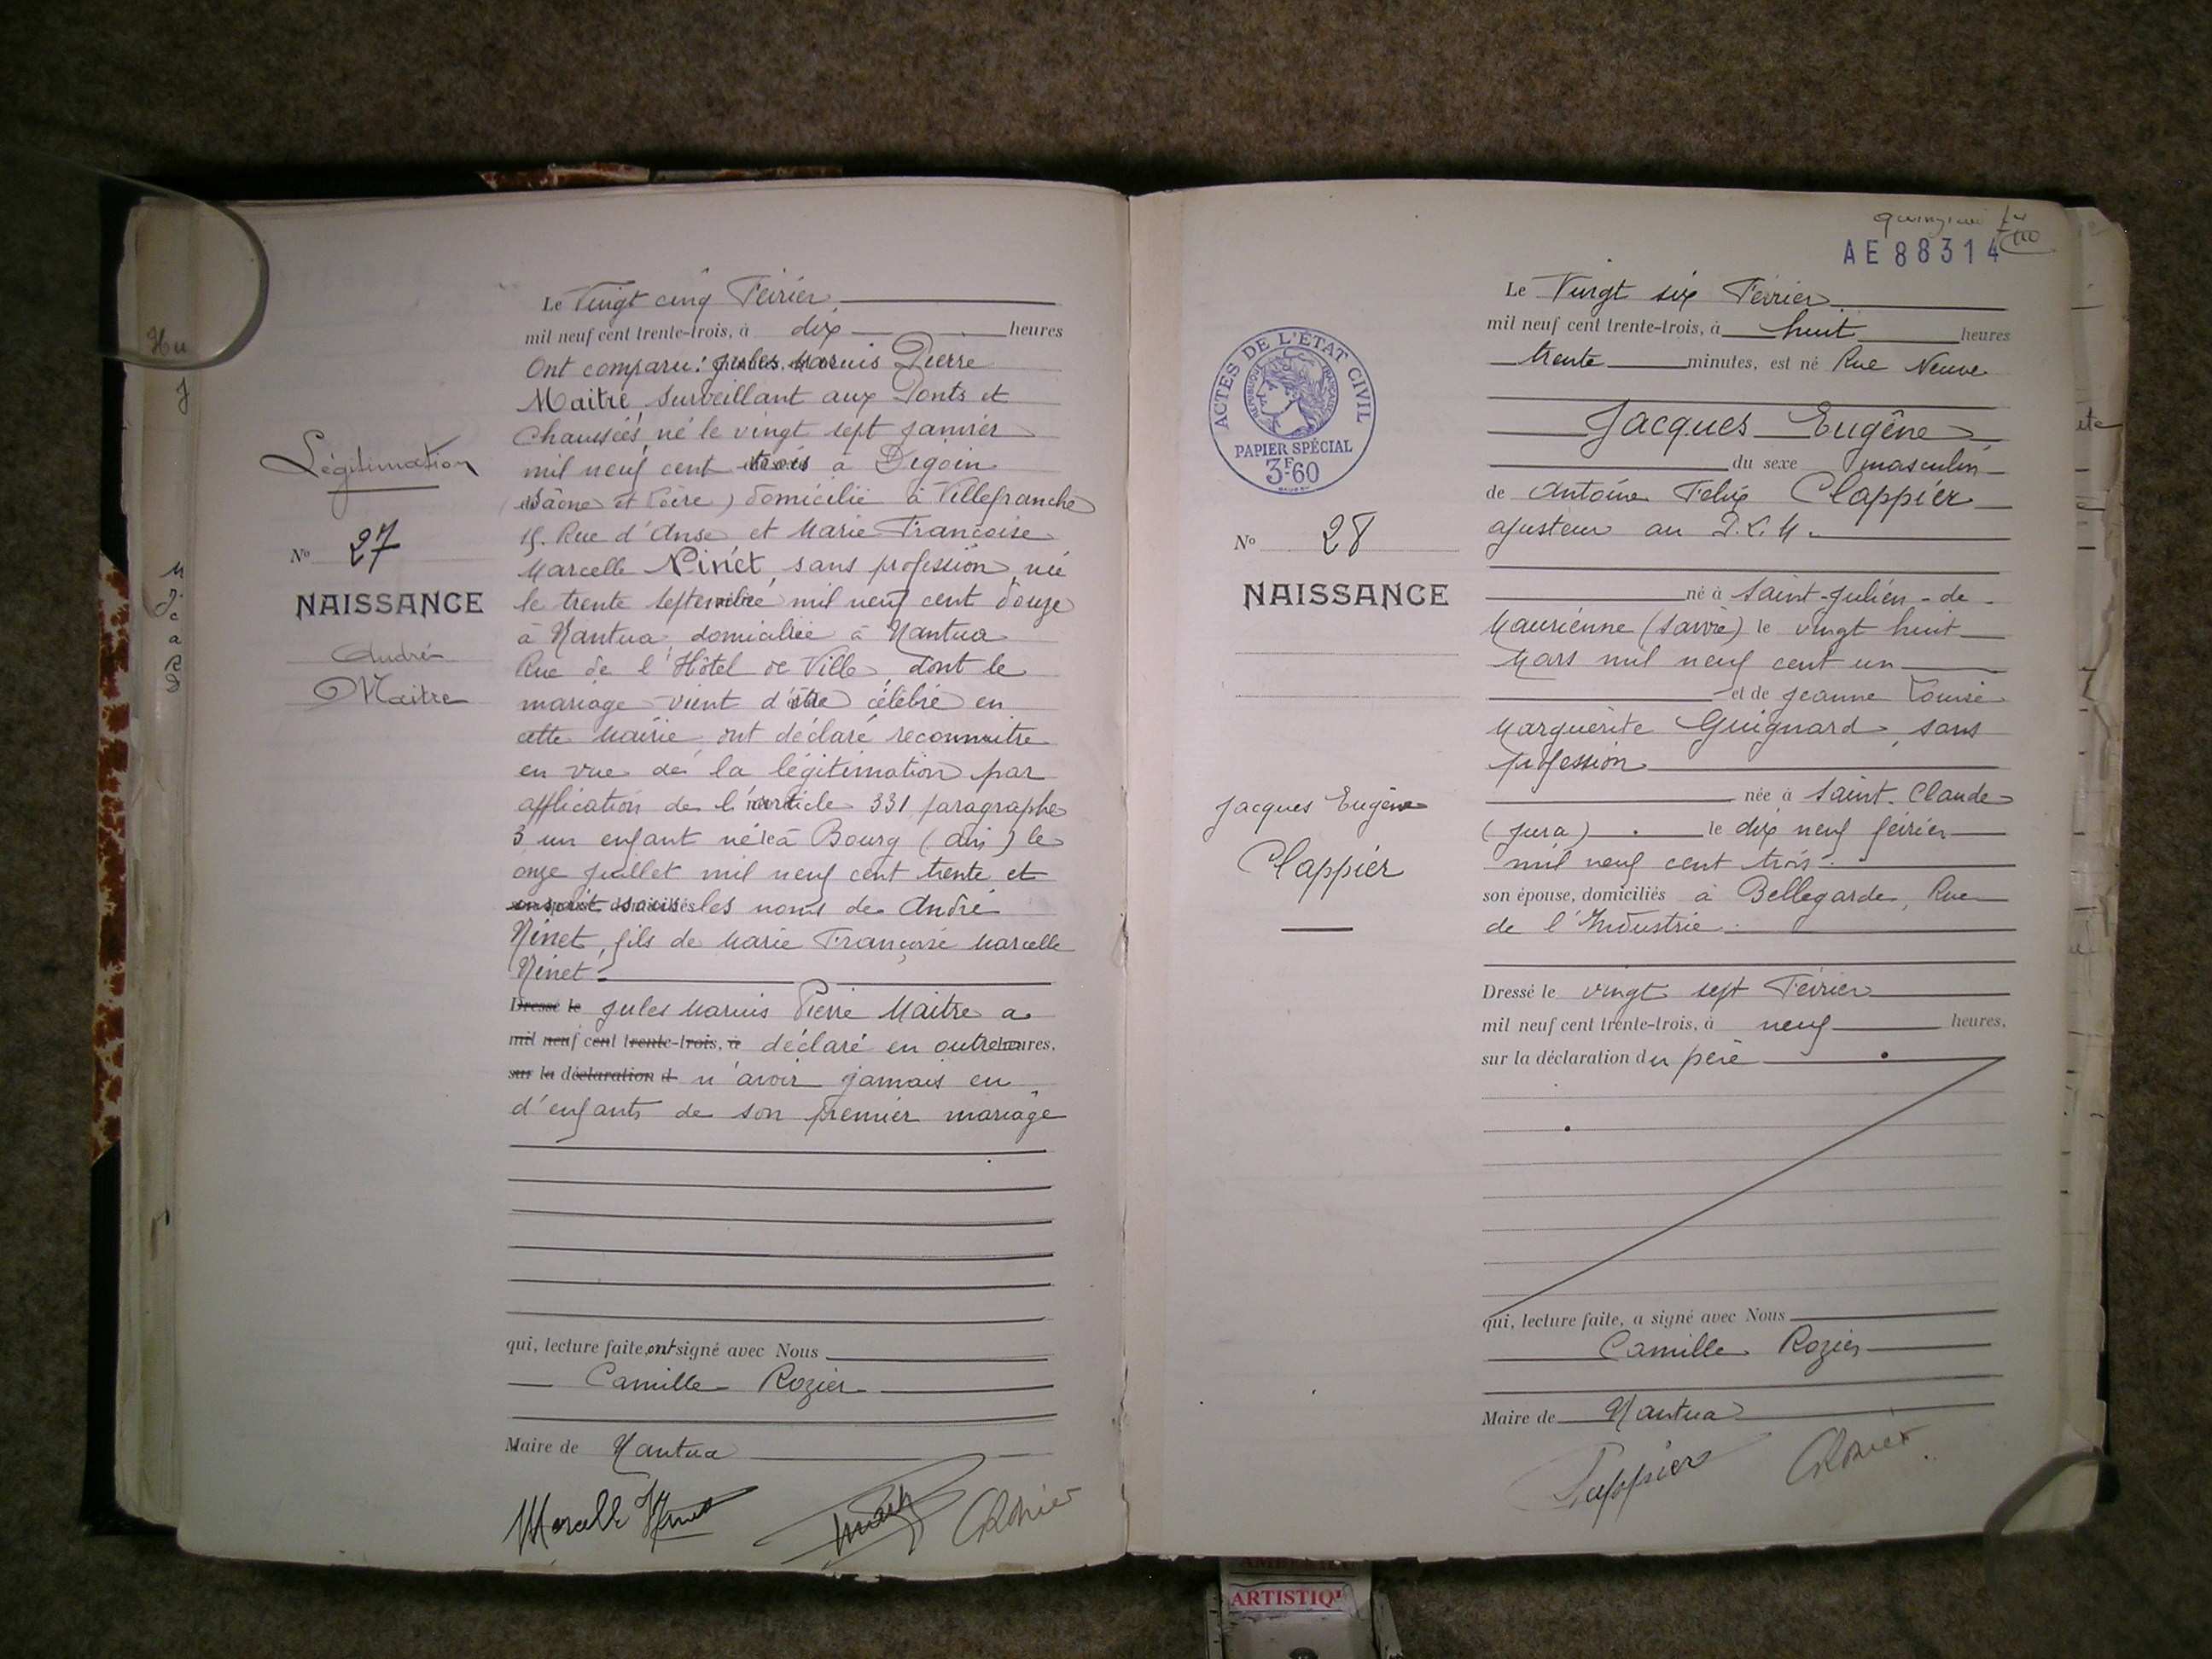 Légitimation
N° 27
NAISSANCE
André
Maitre
Le Vingt cinq Février
mil neuf cent trente-trois, à dix heures
Ont comparu: Jules Marius Pierre
Maitre, surveillant aux Ponts et
Chaussées, né le vingt sept janvier
mil neuf cent trois à Digoin
(Saône et Loire) domicilié à Villefranche
15. Rue d'Anse et Marie Françoise
Marcelle Ninet, sans profession, née
le trente septembre mil neuf cent douze
à Nantua, domiciliée à Nantua
Rue de l'Hôtel de Ville, dont le
mariage vient d'être célébré en
cette Mairie, ont déclaré reconnaitre
en vue de la légitimation par
application de l'article 331 paragraphe
3 un enfant né à Bourg (Ain) le
onze juillet mil neuf cent trente et
inscrit sous les noms de André
Ninet, fils de Marie Françoise Marcelle
Ninet.
Dressé le Jules Marius Pierre Maitre a
mil neuf cent trente-trois, à déclaré en outre heures,
sur la déclaration d n'avoir jamais eu
d'enfants de son premier mariage
qui, lecture faite, ont signé avec Nous
Camille Rozier
Maire de Nantua
Marcelle Ninet
CRozier
AE 88314
ACTES DE L'ÉTAT CIVIL
RÉPUBLIQUE FRANÇAISE
PAPIER SPÉCIAL
3F60
N° 28
NAISSANCE
Jacques Eugène
Clappier
Le Vingt six Février
mil neuf cent trente-trois, à huit heures
trente minutes, est né Rue Neuve
Jacques Eugène
du sexe masculin
de Antoine Felix Clappier
ajusteur au P.L.M.
né à Saint-Julien-de-
Maurienne (Savoie) le vingt huit
Mars mil neuf cent un
et de Jeanne Louise
Marguerite Guignard, sans
profession
née à Saint-Claude
(Jura) le dix neuf février
mil neuf cent trois.
son épouse, domiciliés à Bellegarde, Rue
de l'Industrie.
Dressé le vingt sept Février
mil neuf cent trente-trois, à neuf heures,
sur la déclaration du père
qui, lecture faite, a signé avec Nous
Camille Rozier
Maire de Nantua
Clappier
CRozier
ARTISTIQ